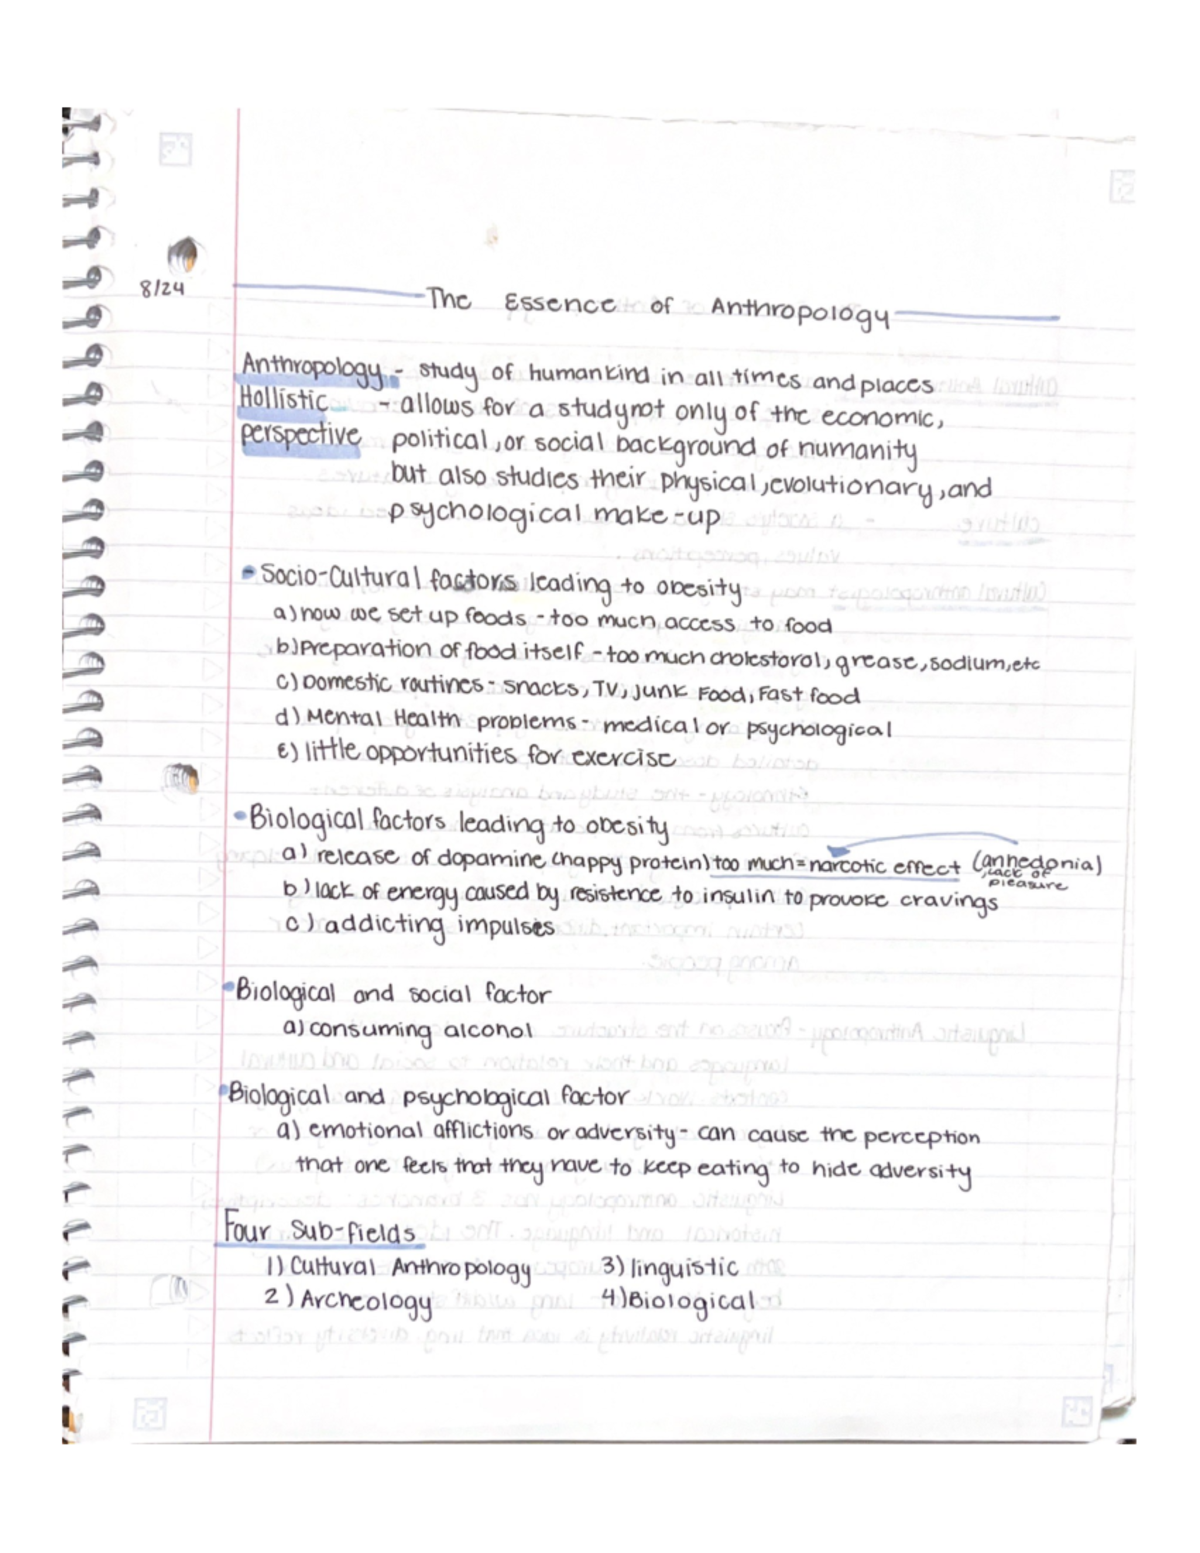 8/24
The Essence of Anthropology
Anthropology - study of humankind in all times and places
Hollistic - allows for a study not only of the economic,
perspective political, or social background of humanity
but also studies their physical, evolutionary, and
psychological make-up
• Socio-Cultural factors leading to obesity
a) how we set up foods - too much access to food
b) Preparation of food itself - too much cholestoral, grease, sodium, etc
c) Domestic routines - snacks, TV, Junk Food, Fast food
d) Mental Health problems - medical or psychological
E) little opportunities for exercise
• Biological factors leading to obesity
a) release of dopamine (happy protein) too much = narcotic effect (anhedonia)
lack of
pleasure
b) lack of energy caused by resistence to insulin to provoke cravings
c) addicting impulses
• Biological and social factor
a) consuming alcohol
• Biological and psychological factor
a) emotional afflictions or adversity - can cause the perception
that one feels that they have to keep eating to hide adversity
Four Sub-fields
1) Cultural Anthropology 3) linguistic
2) Archeology 4) Biological